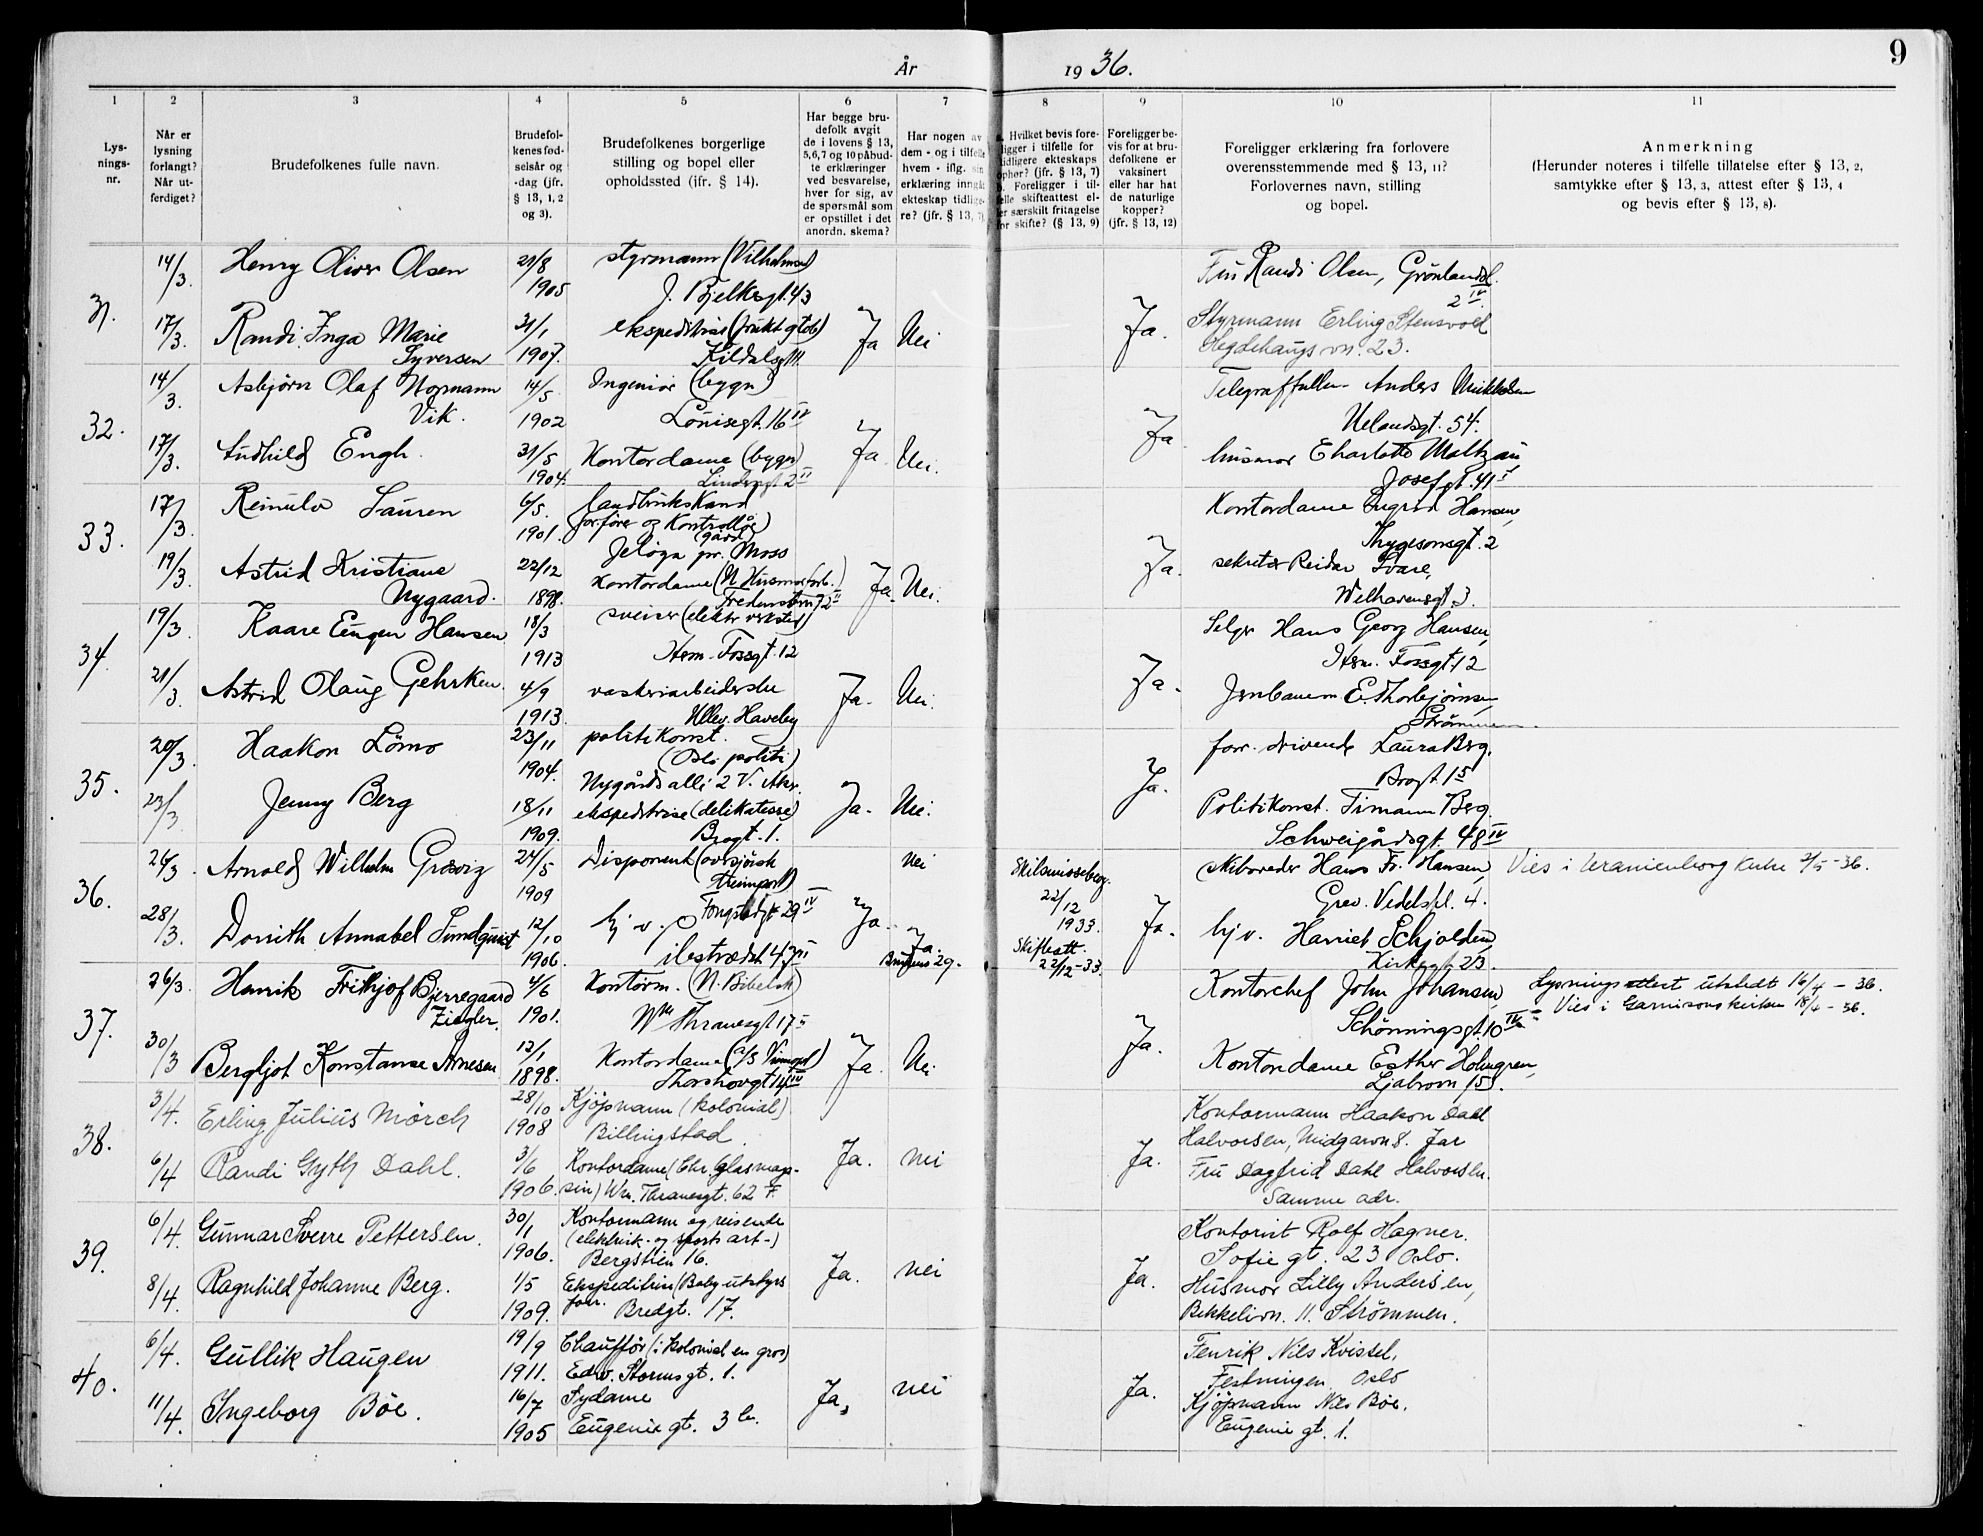 År 1936.
9
1 2 3 4 5 6 7 8 9 10 11
Lys-
nings-
nr.
Når er
lysning
forlangt?
Når ut-
ferdiget?
Brudefolkenes fulle navn.
Brudefol-
kenes fød-
selsår og
-dag (jfr.
§ 13, 1, 2
og 3).
Brudefolkenes borgerlige
stilling og bopel eller
opholdssted (jfr. § 14).
Har begge bru-
defolk avgit
de i lovens § 13,
5, 6, 7 og 10 påbud-
te erklæringer
ved besvarelse,
hver for sig, av
de spørsmål som
er opstillet i det
anordn. skema?
Har nogen av
dem - og i tilfelle
hvem - iflg. sin
erklæring inngått
ekteskap tidlige-
re? (jfr. § 13, 7)
a. Hvilket bevis fore-
ligger i tilfelle for
tidligere ekteskaps
ophør? (jfr. § 13, 7)
b. Foreligger i til-
felle skifteattest el-
ler særskilt fritagelse
for skifte? (§ 13, 9)
Foreligger be-
vis for at bru-
defolkene er
vaksinert
eller har hat
de naturlige
kopper?
(jfr. § 13, 12)
Foreligger erklæring fra forlovere
overensstemmende med § 13, 11?
Forlovernes navn, stilling
og bopel.
Anmerkning
(Herunder noteres i tilfelle tillatelse efter § 13, 2,
samtykke efter § 13, 3, attest efter § 13, 4
og bevis efter § 13, 8).
31.
14/3. Henry Oliver Olsen 21/8 1905 styrmann (Vilhelmsen)
J. Bjelkesgt. 43
17/3. Randi Inga Marie
Syversen 31/1 1907. ekspeditrise (frukt og tob)
Kildalsgt 11
Ja Nei Ja.
Fru Randi Olsen, Grønlandsl.
2 IV.
Styrmann Erling Stensvold
Hegdehaugsvn. 23.
32.
14/3. Asbjørn Olaf Normann
Vik. 14/5 1902 Ingeniør (bygn)
Louisegt. 16 IV
17/3. Gudhild Engh. 31/5 1904. Kontordame (bygn)
2 II
Ja. Nei. Ja
Anders Mikkelsen
Uelandsgt. 54.
husmor Charlotte Maltzau
Josefgt. 41 I
33.
17/3. Reinulv Sauren 6/5. 1901. landbrukskand
forfører og Kontrollør
Jeløya pr. Moss
19/3. Astrid Kristiane
Nygaard. 22/12 1898. Kontordame (N. Husmorforb.)
Ja. Nei. Ja.
Kontordame Ingrid Hansen,
Thygesonsgt. 2
sekretær Reidar Svare,
Welhavensgt. 3.
34.
19/3. Kaare Eugen Hansen 18/3 1913 sveiser (elektr verksted)
Herm. Fossgt. 12
21/3. Astrid Olaug Gehrken. 4/9 1913. vaskeriarbeiderske
Ullev. Haveby
Ja. Nei. Ja.
Selger Hans Georg Hansen,
Herm. Fossgt. 12
Jernbanem E. Thorbjørnsen
Strømmen.
35.
20/3. Haakon Lømo 23/11 1904. politikonst.
(Oslo politi)
Nygårds alli 2 V. Aker.
23/3 Jenny Berg 18/11 1909. ekspeditrise (delikatesse)
Brogt. 1.
Ja. Nei. Ja.
forr. drivende Laura Berg.
Brogt 15
Politikonst. Timann Berg.
Schweigårdsgt. 48 IV
36.
26/3. Arnold Wilhelm Græsvig 24/5 1909 Disponent (oversjøisk
Treimport)
Tongstadgt 29 IV
28/3. Dorrith Annabel Sundquist 12/10 1906. hj. v.
47 III
Ja. Nei
Ja.
Bruden 29.
Skilsmissebev.
22/12
1933.
Skifteatt.
22/12-33
Ja.
skibsreder Hans Fr. Hansen,
Grev. Vedelspl. 4.
hjv. Harriet Schjolden,
Kirkegt 23.
Vies i Uranienborg Kirke 2/5-36.
37.
26/3. Henrik Frithjof Bjerregaard
Ziegler. 4/6 1901. Kontorm. (N. Bibelsk)
Wm Thranesgt 17
30/3 Bergljot Konstanse Arnesen 12/1 1898. Kontordame (A/S Vinmonopol)
Ja. Nei Ja.
Kontorchef John Johansen,
Schønningsgt. 10 IV
Kontordame Esther Holmgren,
Ljabrovn 15.
Lysningsattest utstedt 16/4 - 36.
Vies i Garnisonskirken 18/4 - 36.
38.
3/4. Erling Julius Mörch 28/10 1908 Kjøpmann (kolonial)
Billingstad.
6/4 Randi Gyth Dahl. 3/6 1906. Kontordame (Chr. Glasmaga-
sin) Wm. Thranesgt. 62 F.
Ja. nei Ja.
Kontormann Haakon Dahl
Halvorsen, Midgarvn 8. Jar
Fru Dagfrid Dahl Halvorsen.
Samme adr.
39.
6/4. Gunnar Sverre Pettersen. 30/1 1906. Kontormann og reisende
(elektrisk- og sports art-)
Bergstien 16.
8/4. Ragnhild Johanne Berg. 1/5 1909. Ekspeditrise (Baby utstyrs
forr. Bredgt. 17.
Ja. nei Ja.
Kontorist Rolf Hagner.
Sofie gt. 23 Oslo.
Husmor Lilly Andersen,
Bekkelivn. 11. Strømmen.
40.
6/4. Gullik Haugen 19/9 1911. Chauffør (i kolonial en gros)
Edv. Stormsgt. 1.
11/4. Ingeborg Böe. 16/7 1905 Sydame
Eugenie gt. 3 b.
Ja, nei Ja.
Fenrik Nils Kvissel,
Festningen Oslo
Kjøpmann Nils Böe.
Eugenie gt. 1.